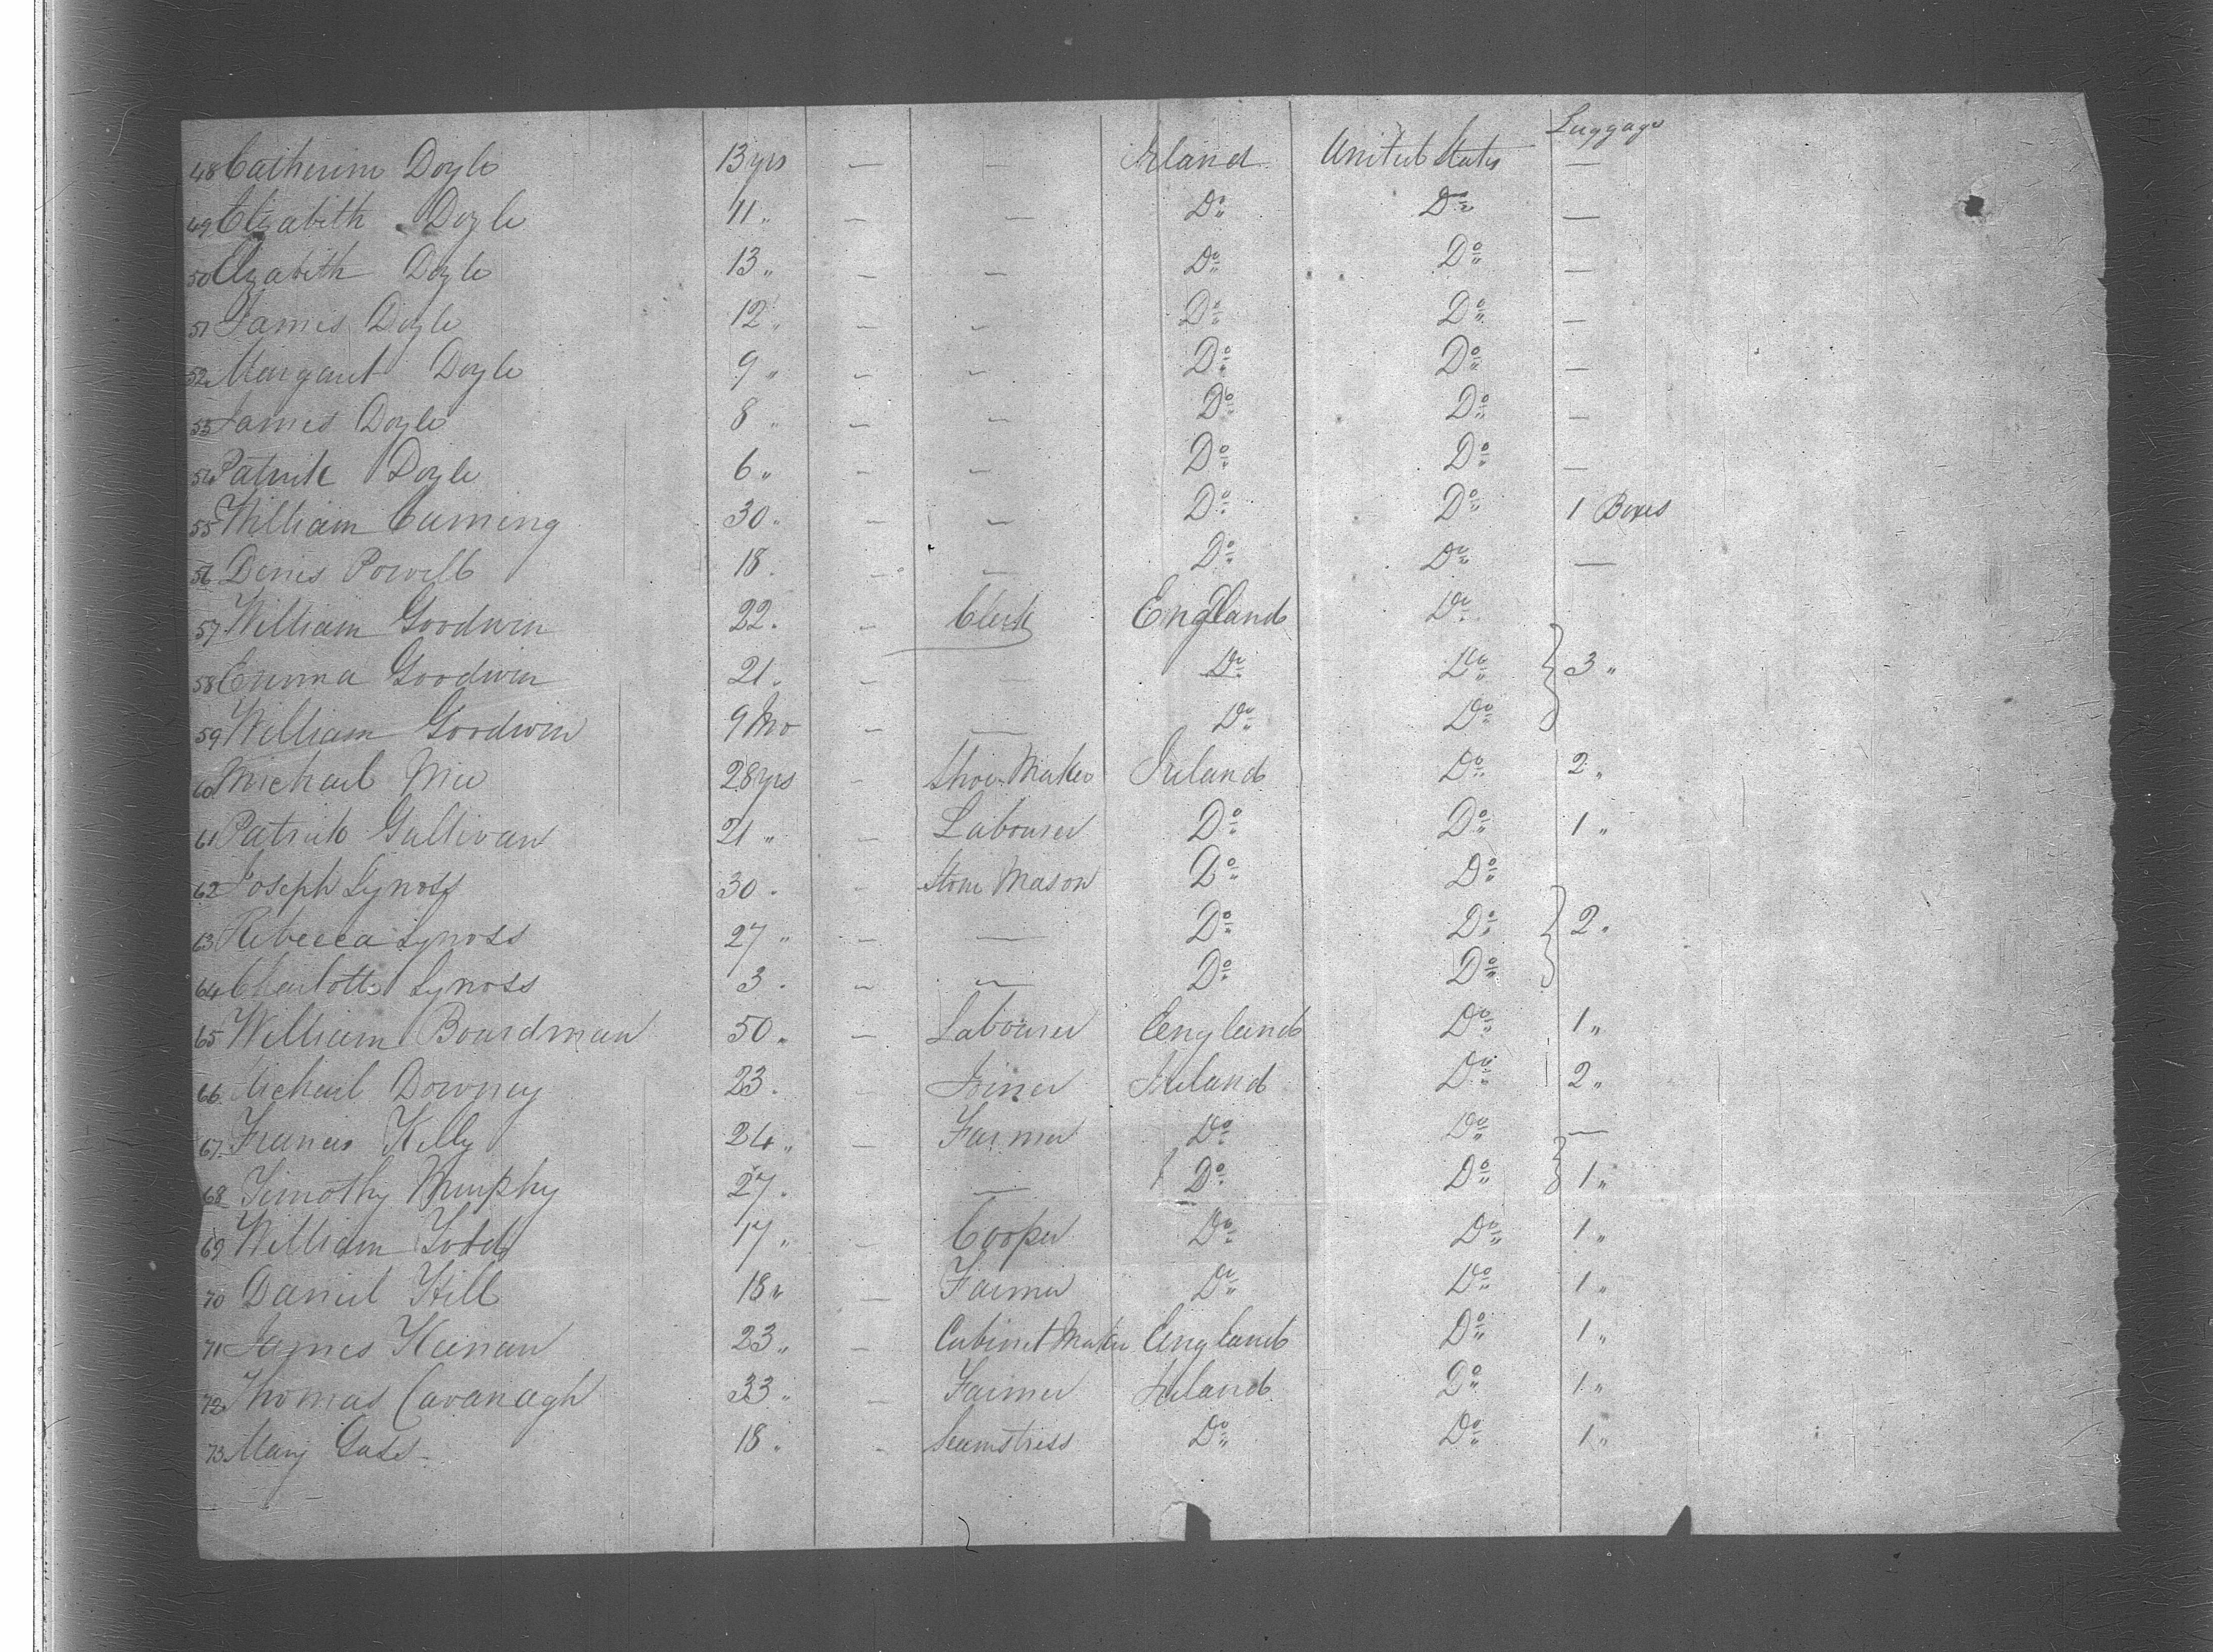 Luggage
48 Catherine Doyle 13 yrs — — Ireland United States —
49 Elizabeth Doyle 11 " — — Do Do —
50 Elizabeth Doyle 13 " — — Do Do —
51 James Doyle 12 " — — Do Do —
52 Margaret Doyle 9 " — — Do Do —
53 James Doyle 8 " — — Do Do —
54 Patrick Doyle 6 " — — Do Do —
55 William Cuming 30 " — — Do Do 1 Boxes
56 Denis Powell 18 " — — Do Do —
57 William Goodwin 22 " — Clerk England Do
58 Emma Goodwin 21 " — — Do Do } 3 "
59 William Goodwin 9 Mo — — Do Do
60 Michael 28 yrs — Shoe Maker Ireland Do 2 "
61 Patrick Gullivan 21 " — Labourer Do Do 1 "
62 Joseph Lynoss 30 " — Stone Mason Do Do
63 Rebecca Lynoss 27 " — — Do Do } 2 "
64 Charlotte Lynoss 3 " — — Do Do
65 William Boardman 50 " — Labourer England Do 1 "
66 Michael Downey 23 " — Joiner Ireland Do 2 "
67 Francis Kelly 24 " — Farmer Do Do —
68 Timothy Murphy 27 " — Do Do } 1 "
69 William Todd 17 " — Cooper Do Do 1 "
70 Daniel Hill 18 " — Farmer Do Do 1 "
71 James Keenan 23 " — Cabinet Maker England Do 1 "
72 Thomas Cavanagh 33 " — Farmer Ireland Do 1 "
73 Mary 18 " — Seamstress Do Do 1 "